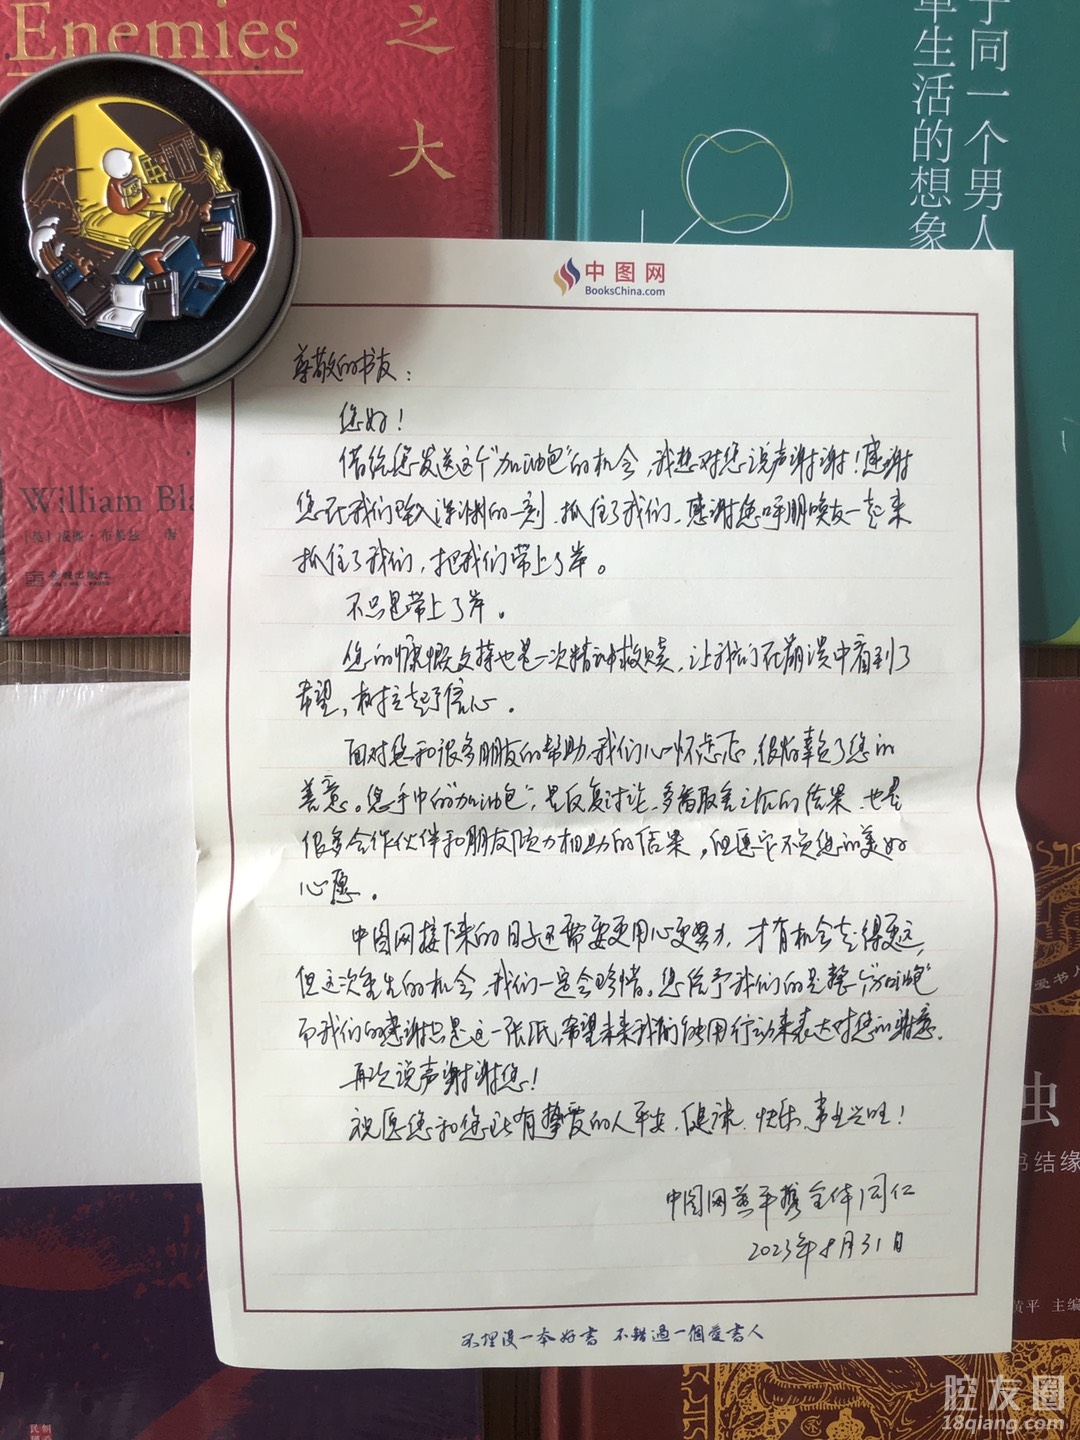 Enemies
之
大
于同一个男人
单生活的想象
William Bla
[英] 威廉·布莱兹 著
金城出版社
中图网
BooksChina.com
尊敬的书友：
您好！
借给您发送这个“加油包”的机会，我想对您说声谢谢！感谢
您在我们跌入深渊的一刻，抓住了我们，感谢您呼朋唤友一起来
抓住了我们，把我们带上了岸。
不只是带上了岸。
您的慷慨支持也是一次精神救赎，让我们在崩溃中看到了
希望，树立起了信心。
面对您和很多朋友的帮助，我们心怀忐忑，很怕辜负了您的
善意。您手中的“加油包”，是反复讨论、多番取舍之后的结果，也是
很多合作伙伴和朋友倾力相助的结果，但愿它不负您的美好
心愿。
中图网接下来的日子还需要更用心更努力，才有机会走得更远，
但这次重生的机会，我们一定会珍惜。您给予我们的是整个“加油包”
而我们的感谢只是这一张纸，希望未来我们能用行动来表达对您的谢意。
再次说声谢谢您！
祝愿您和您所有挚爱的人平安、健康、快乐、事业兴旺！
中图网黄平携全体同仁
2023年8月31日
不埋没一本好书 不错过一個爱書人
爱书人
虫
书结缘
黄平 主编
腔友圈
18qiang.com